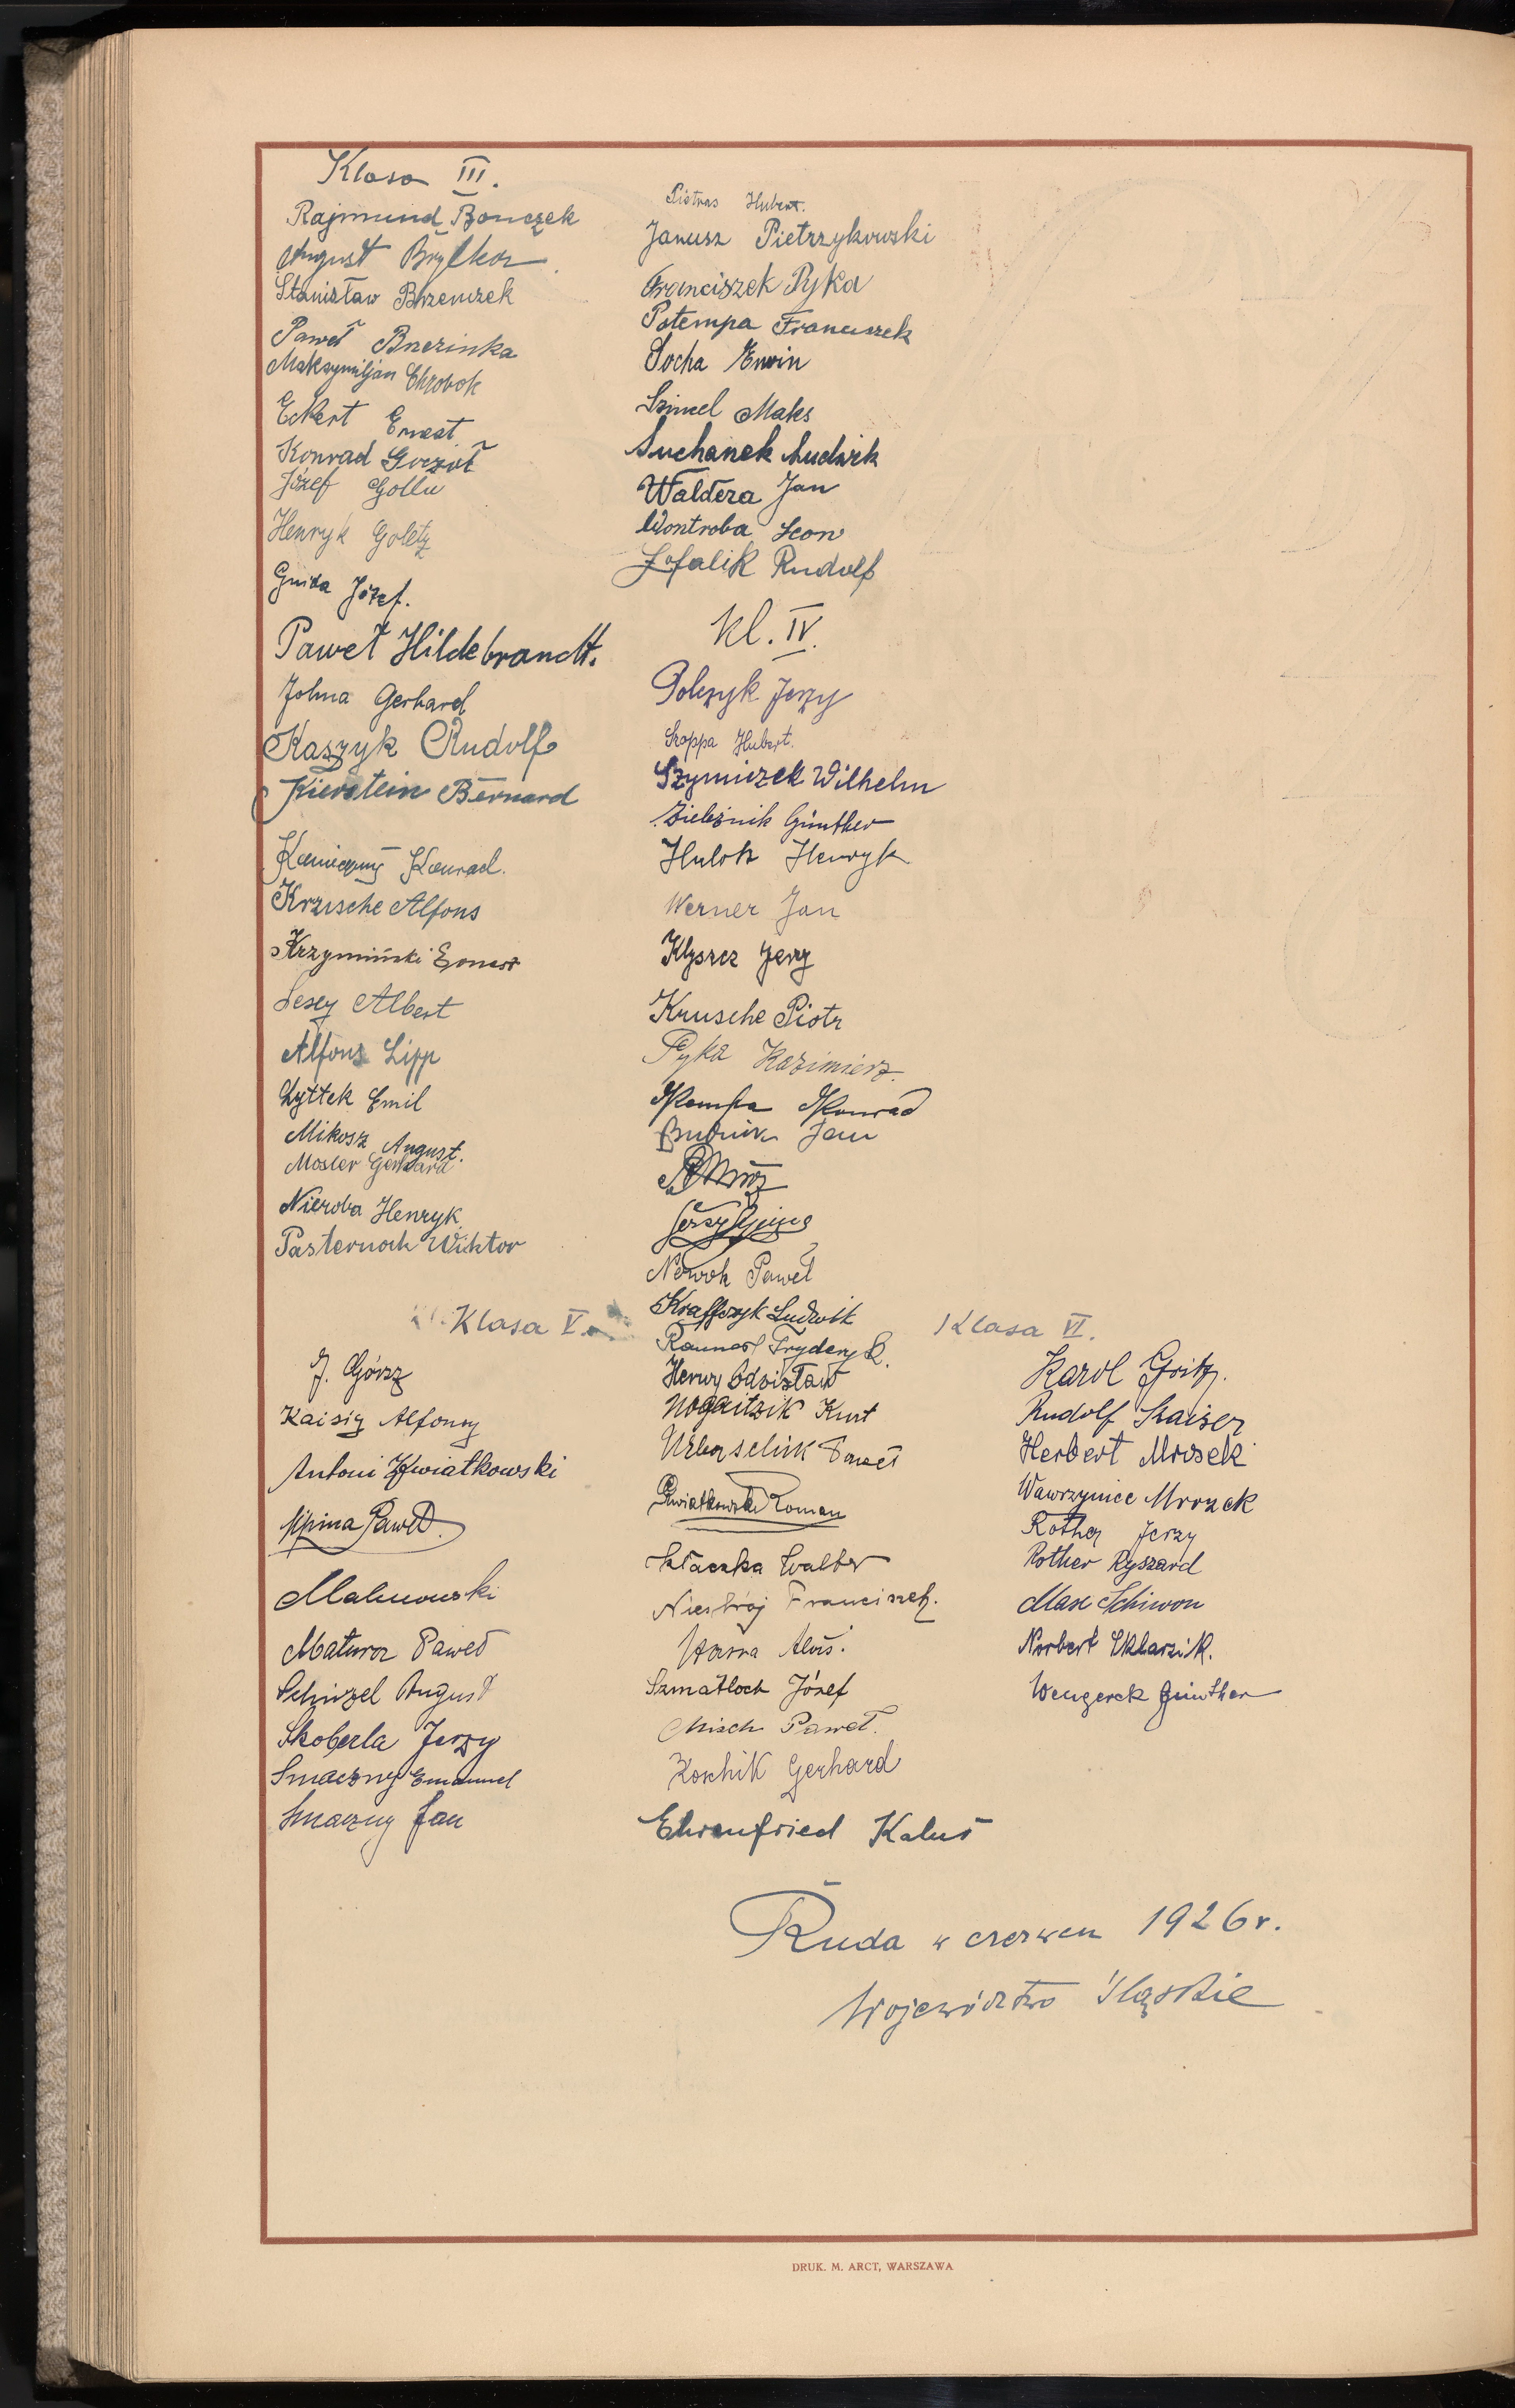 Klasa III.
Rajmund Bonczek
August Brylka
Stanisław Brzenczek
Paweł Brzezinka
Maksymiljan Chrobok
Eckert Ernest
Konrad Goczoł
Józef Golla
Henryk Goletz
Gnida Józef.
Paweł Hildebrandt.
Johna Gerhard
Kaszyk Rudolf
Kierstein Bernard
Konieczny Konrad.
Krzische Alfons
Krzymiński Ernest
Lesey Albert
Alfons Lipp
Lyttek Emil
Mikosz August.
Mosler Gerhard
Nieroba Henryk
Pasternok Wiktor
Pietras Hubert.
Janusz Pietrzykowski
Franciszek Pyka
Potempa Franciszek
Socha Erwin
Szimel Maks
Suchanek Ludwik
Waldera Jan
Wontroba Leon
Zofalik Rudolf
kl. IV.
Polczyk Jerzy
Skoppa Hubert.
Szymiczek Wilhelm
Zieleznik Günther
Hulok Henryk
Werner Jan
Klyszcz Jerzy
Krusche Piotr
Pyka Kazimierz.
Kempa Konrad
Budnik Jan
Mróz
Jerzy
Nowok Paweł
Kraffczyk Ludwik
Klasa V.
J. Górsz
Kaisig Alfonsy
Antoni Kwiatkowski
Lipina Paweł.
Malinowski
Matura Paweł
Schinzel August
Skoberla Jerzy
Smaczny Emanuel
Smaczny Jan
Fryderyk.
Henry Zdzisław
Nogaitzik Kurt
Urbaschik Paweł
Kwiatkowski Roman
Skłaczka Walter
Niestrój Franciszek.
Alois.
Szmatloch Józef
Misch Paweł.
Koschik Gerhard
Ehrenfried Kalus
Klasa VI.
Karol Gritz.
Rudolf Kaiser
Herbert Mrosek
Wawrzyniec Mrozek
Rother Jerzy
Rother Ryszard
Max Schiwon
Norbert Sklarzik.
Wengerek Günther
Ruda w czerwcu 1926 r.
Województwo Śląskie
DRUK. M. ARCT, WARSZAWA